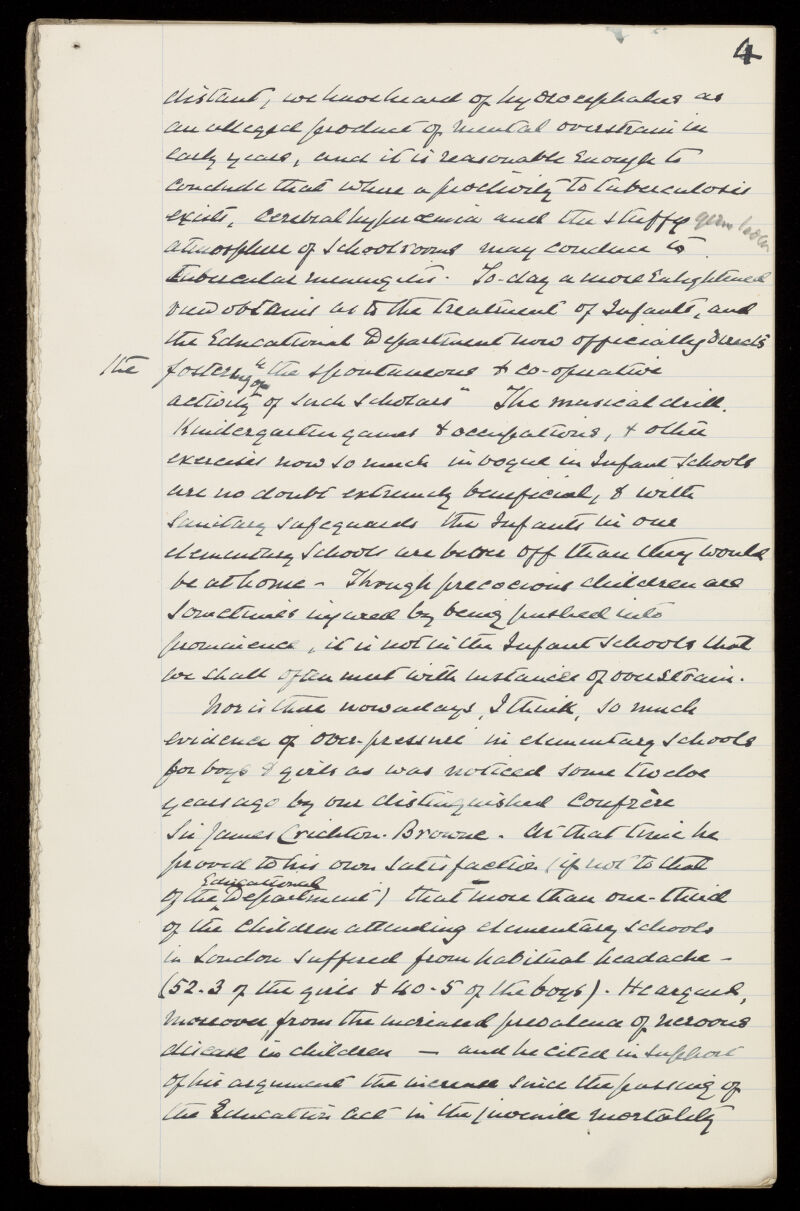 4
distant, we have heard of hydrocephalus as
an alleged product of mental overstrain in
early years, and it is reasonable enough to
conclude that where a proclivity to tuberculosis
exists, cerebral hyperæmia and the stuffy germ laden
atmosphere of schoolrooms may conduce to
tubercular meningitis. To-day a more enlightened
view obtains as to the treatment of Infants, and
the Educational Department now officially directs
the fostering of "the spontaneous & co-operative
activity of such scholars" The musical drill.
Kindergarten games & occupations, & other
exercises now so much in vogue in Infant Schools
are no doubt extremely beneficial, & with
sanitary safeguards the Infants in our
elementary Schools are better off than they would
be at home - Though precocious children are
sometimes injured by being pushed into
prominence, it is not in the Infant Schools that
we shall often meet with instances of overstrain.
Nor is there nowadays, I think, so much
evidence of over-pressure in elementary schools
for boys & girls as was noticed some twelve
years ago by our distinguished confrère
Sir James Crichton-Browne. At that time he
proved to his own satisfaction (if not to that
of the Educational Department) that more than one-third
of the children attending elementary schools
in London suffered from habitual headache -
(52.3 of the girls & 40.5 of the boys). He argued,
moreover, from the increased prevalence of nervous
disease in children — and he cited in support
of his argument the increase since the passing of
the Education Act in the juvenile mortality